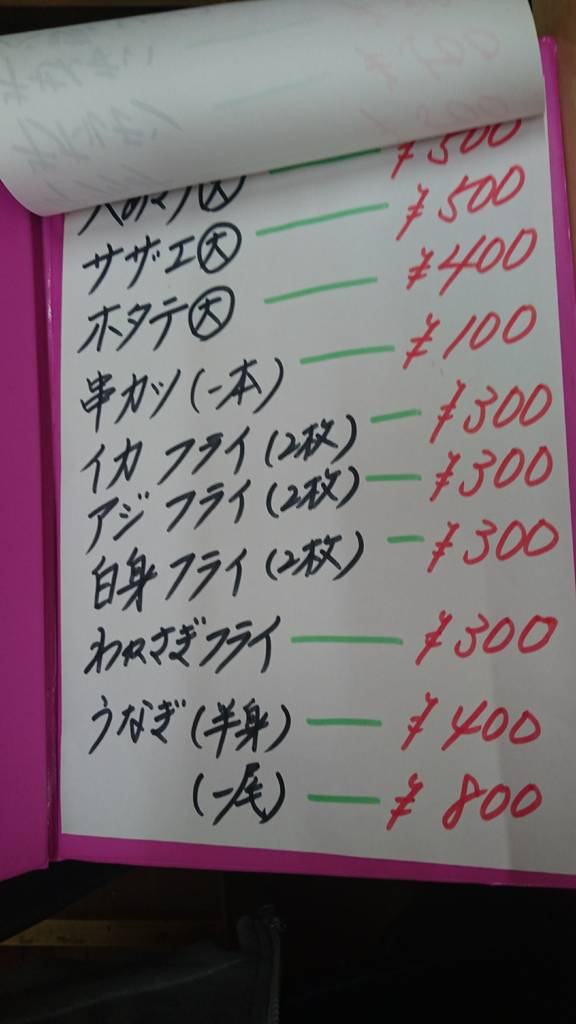 サザエ㊛大 ¥500
ホタテ大 ¥400
串カツ(一本) ¥100
イカフライ(2枚) ¥300
アジフライ(2枚) ¥300
白身フライ(2枚) ¥300
わかさぎフライ ¥300
うなぎ(半身) ¥400
(一尾) ¥800